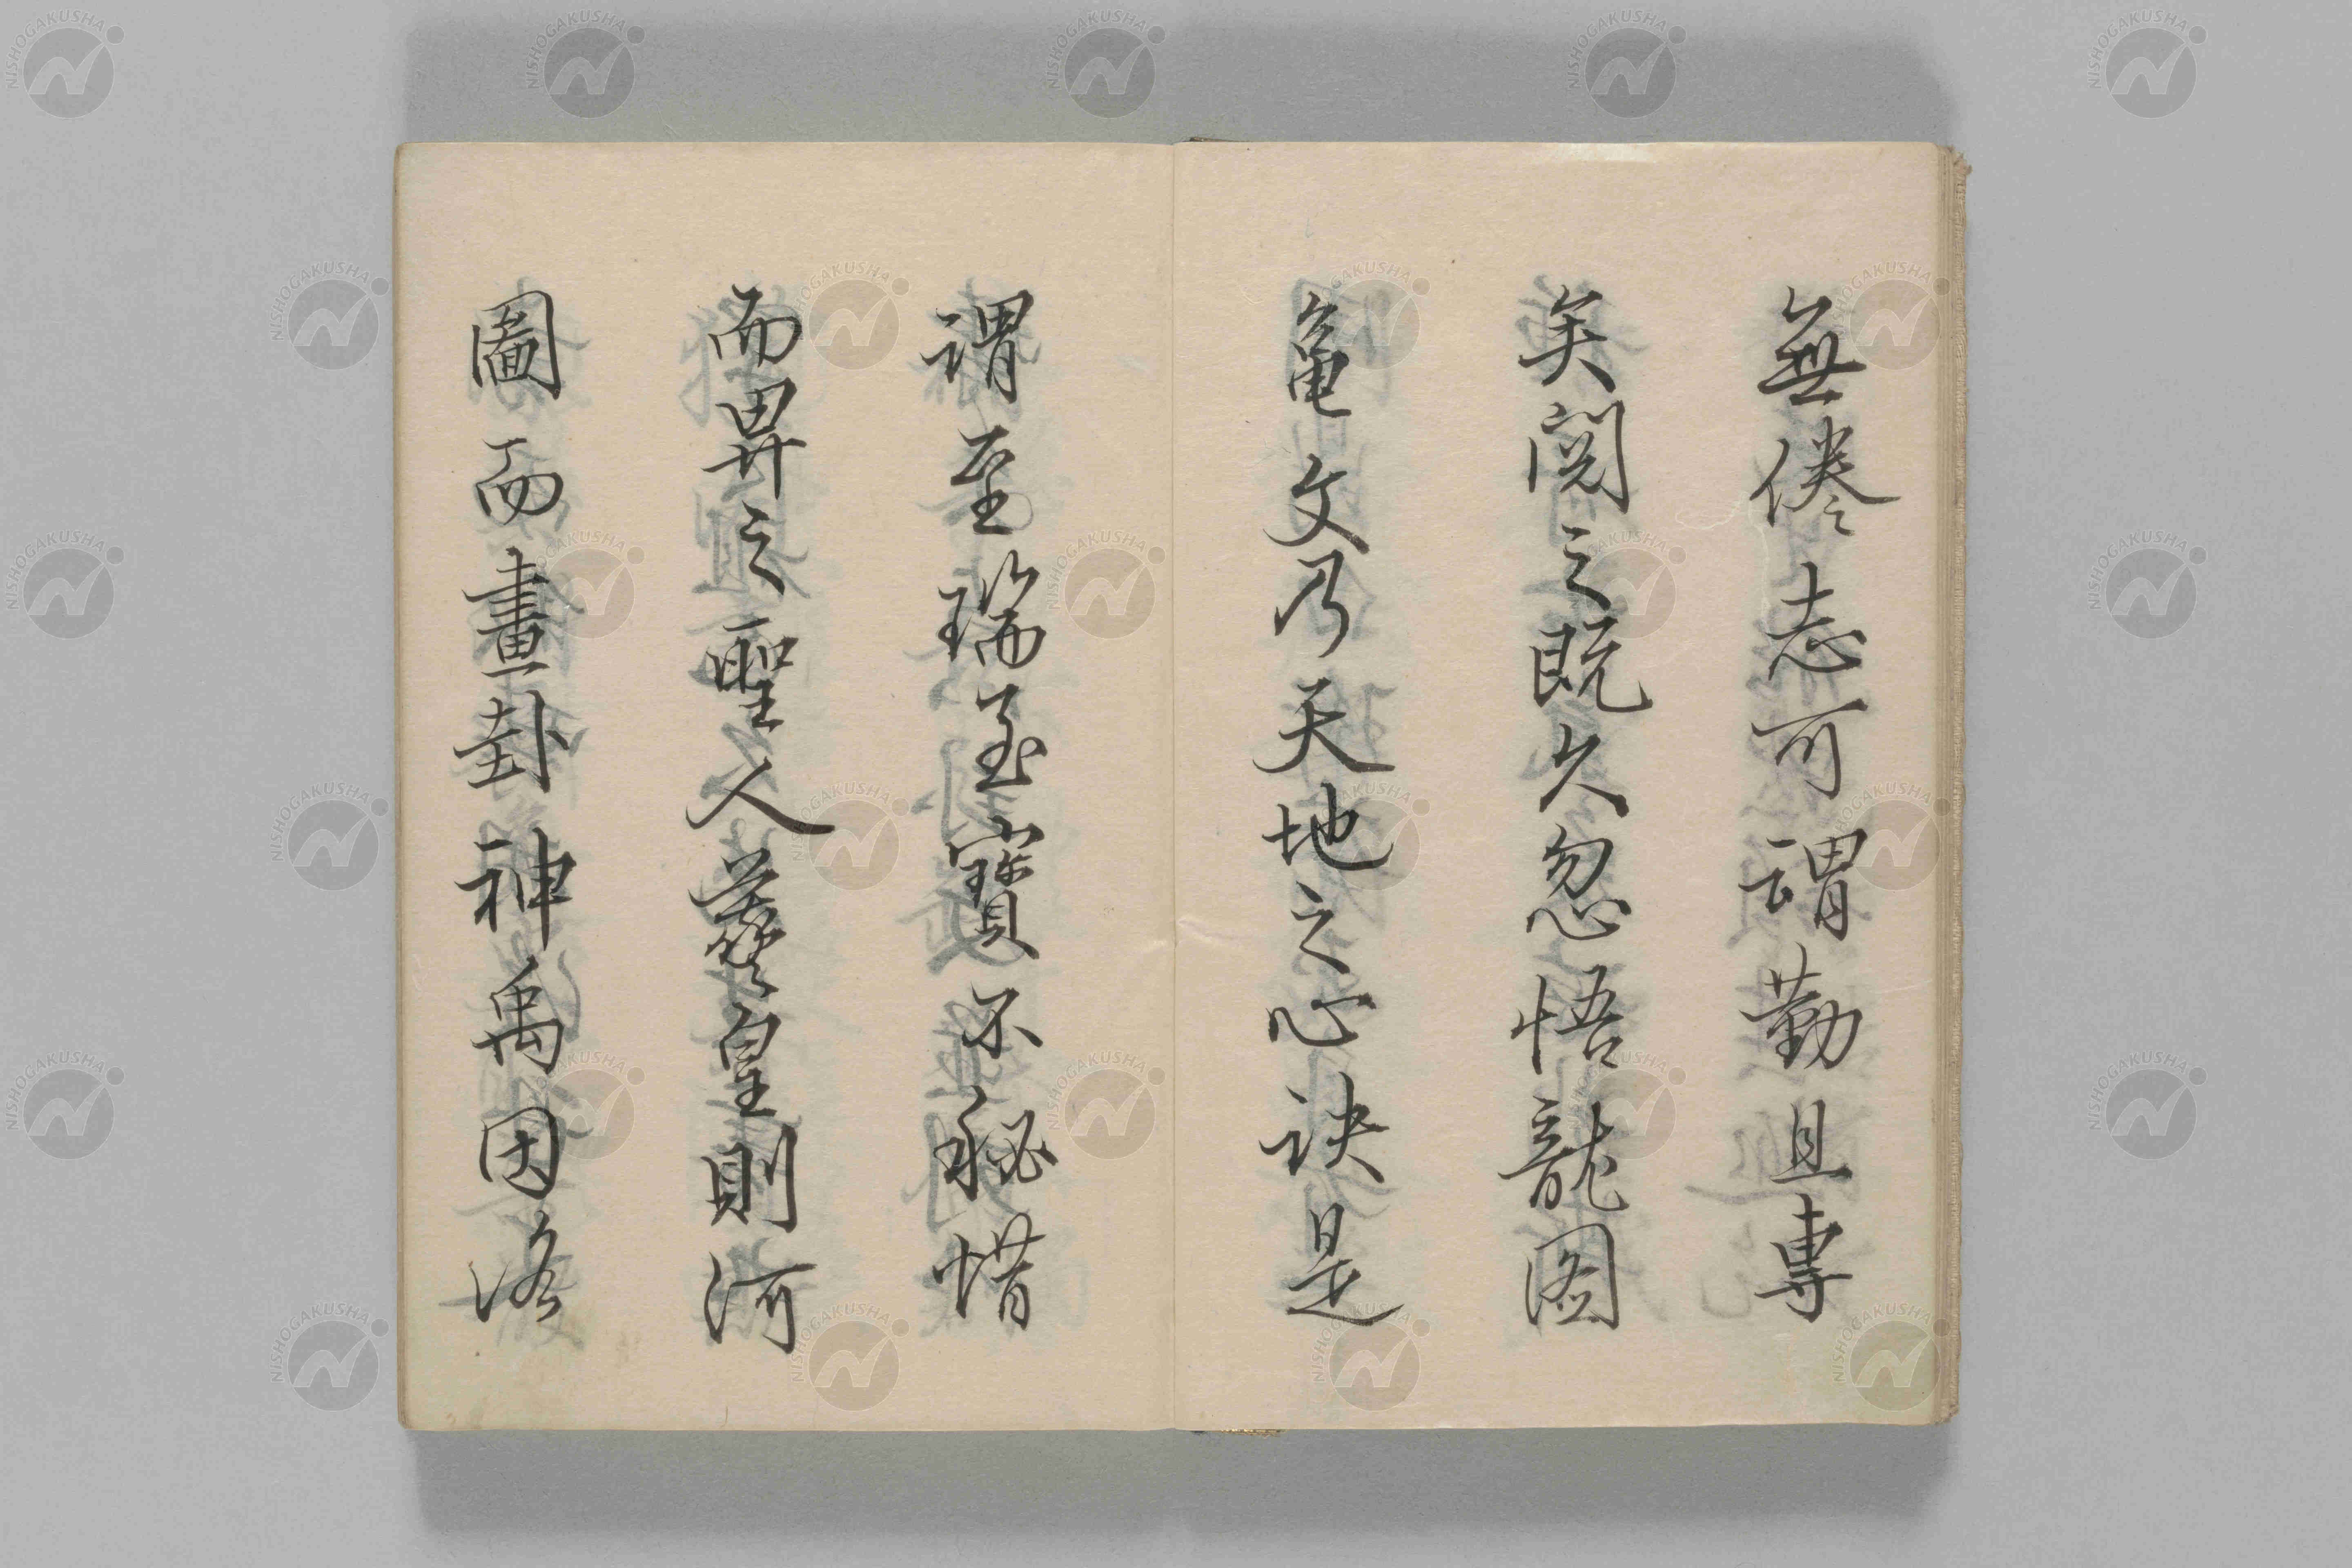 無倦志可謂勤且専
矣閲之既久忽悟龍図
亀文乃天地之心訣是
謂至瑞至寶不秘惜
而畀之聖人羲皇則河
圖而畫卦神禹因洛
NISHOGAKUSHA